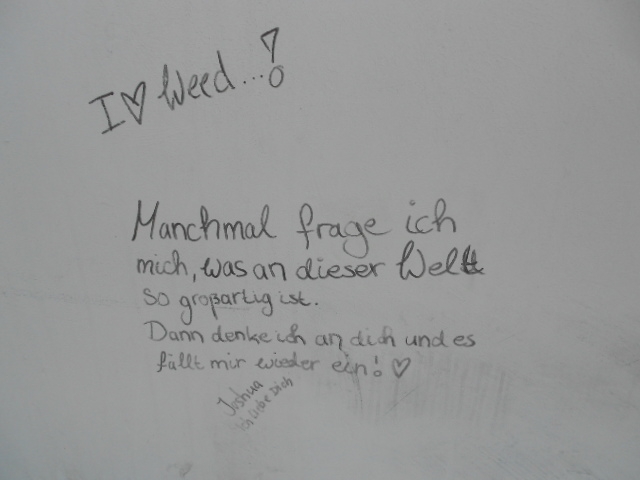 I ♡ Weed...!
Manchmal frage ich
mich, was an dieser Welt
so großartig ist.
Dann denke ich an dich und es
fällt mir wieder ein! ♡
Joshua
ich liebe Dich